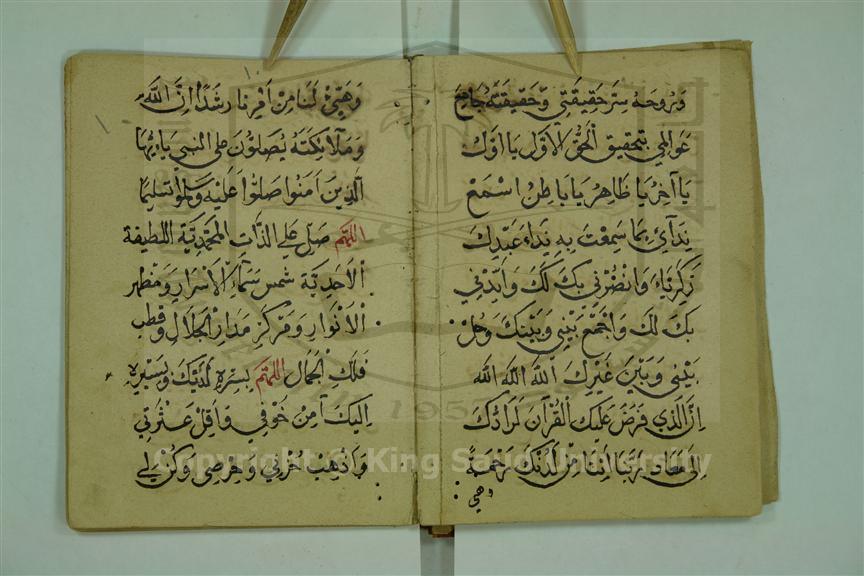 وَرُوحَهُ سِرَّ حَقِيقَتِي وَحَقِيقَتَهُ جَامِعَ
عَوَالِمِي بِتَحْقِيقِ الْحَقِّ الْأَوَّلِ يَا أَوَّلُ
يَا آخِرُ يَا ظَاهِرُ يَا بَاطِنُ اسْمَعْ
نِدَآئِي بِمَا سَمِعْتَ بِهِ نِدَاءَ عَبْدِكَ
زَكَرِيَّاءَ وَانْصُرْنِي بِكَ لَكَ وَأَيِّدْنِي
بِكَ لَكَ وَاجْمَعْ بَيْنِي وَبَيْنَكَ وَحُلْ
بَيْنِي وَبَيْنَ غَيْرِكَ اللّٰهُ اللّٰه اللّٰه
اِنَّ الَّذِي فَرَضَ عَلَيْكَ الْقُرْآنَ لَرَادُّكَ
اِلَى مَعَادٍ رَبَّنَا آتِنَا مِنْ لَدُنْكَ رَحْمَةً
وهيئ
وَهَيِّئْ لَنَا مِنْ أَمْرِنَا رَشَدًا اِنَّ اللّٰهَ
وَمَلَآئِكَتَهُ يُصَلُّونَ على النبي يَاءَيُّهَا
الَّذِينَ آمَنُوا صَلُّوا عَلَيْهِ وَسَلِّمُوا تَسْلِيمًا
اللهم صَلِّ عَلَى الذَّاتِ الْمُحَمَّدِيَّةِ اللطيفة
الْأَحَدِيَّةِ شَمْسِ سَمَآءِ الْأَسْرَارِ وَمَظْهَر
الْأَنْوَارِ وَمَرْكَزِ مَدَارِ الْجَلَالِ وَقُطْبِ
فَلَكِ الْجَمَالِ اللهم بِسِرِّهِ لَدَيْكَ وَبِسَيْرِهِ
اِلَيْكَ آمِنْ خَوْفِي وَأَقِلْ عَثْرَتِي
وَأَذْهِبْ حُزْنِي وَحِرْصِي وَكُنْ لِي
Copyright © King Saud University
1957